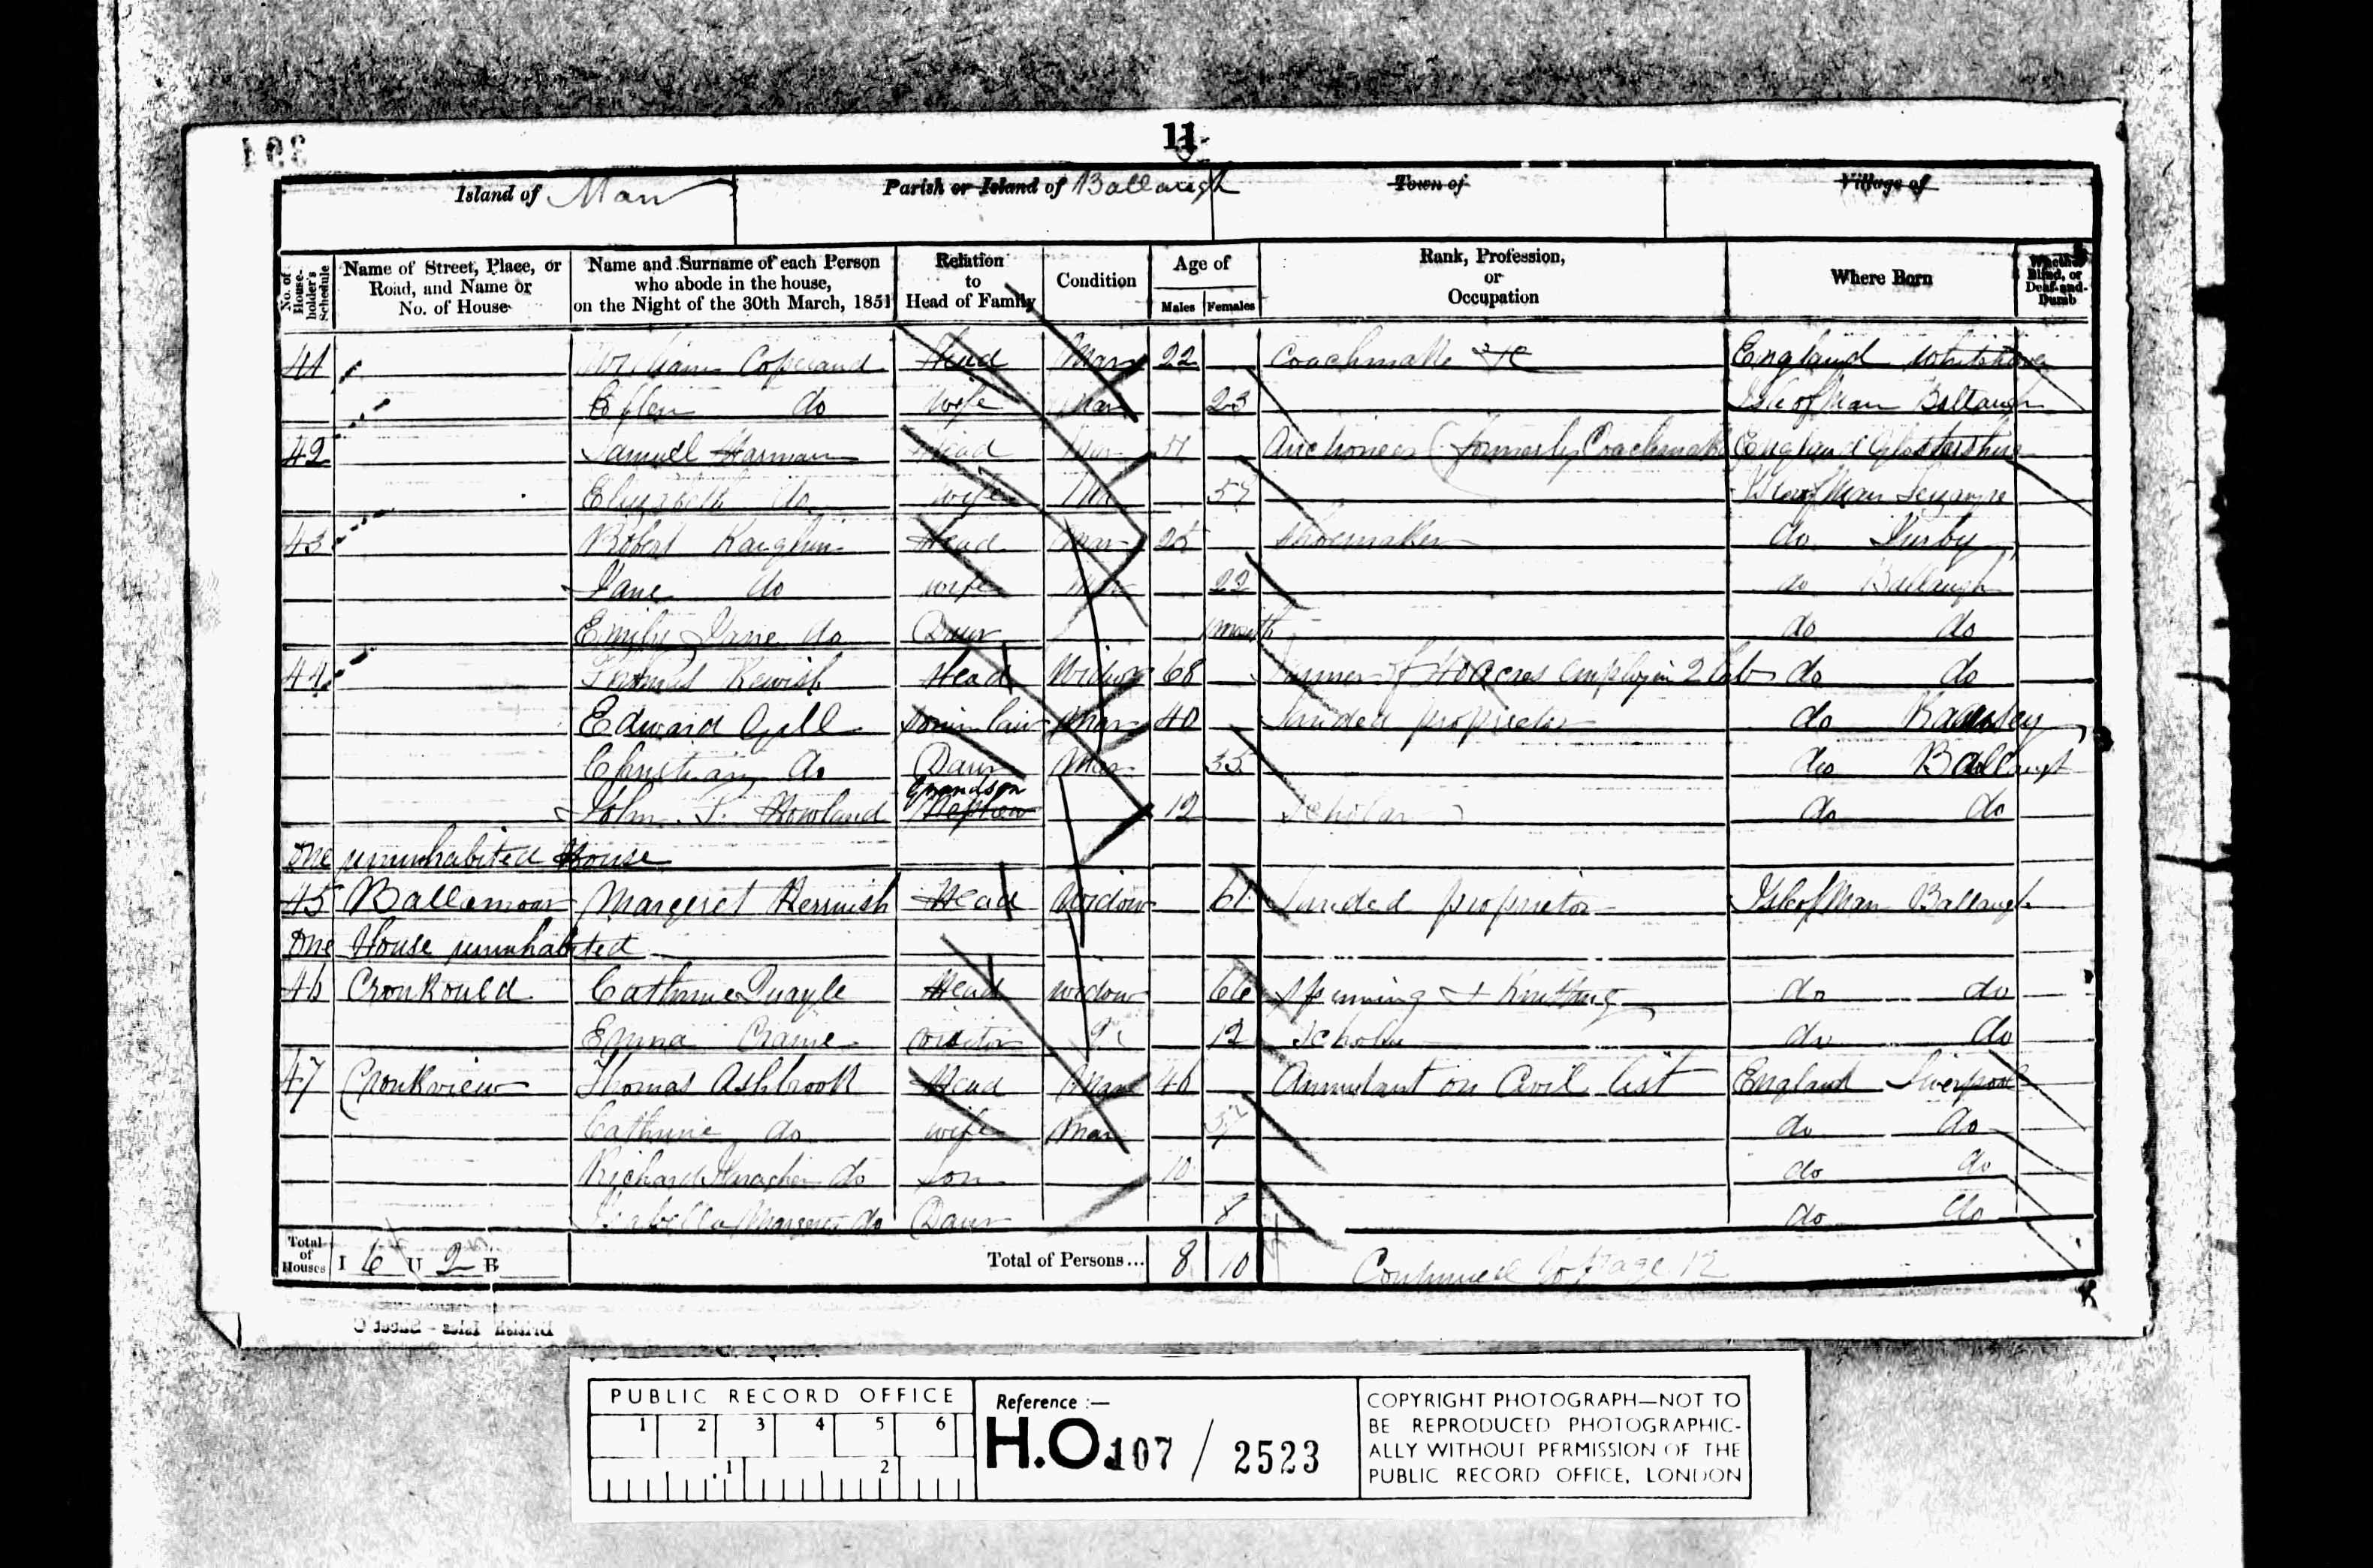 11
Island of Man Parish or Island of Ballaugh Town of Village of
No. of House-holder's Schedule
Name of Street, Place, or Road, and Name or No. of House
Name and Surname of each Person who abode in the house, on the Night of the 30th March, 1851
Relation to Head of Family
Condition
Age of Males Females
Rank, Profession, or Occupation
Where Born
Whether Blind, or Deaf-and-Dumb
41 William Copeland Head Mar 22 Coachmake England
do wife Mar 23 Isle of Man Ballaugh
42 Samuel Harman Head Mar Auctioneer (formerly Coachmaker England
Elizabeth do wife 57 Isle of Man
43 Robert Head Mar 25 Shoemaker do Jurby
Jane do wife Mar 22 do Ballaugh
Emily Jane do Daur month do do
44 Thomas Kewish Head Widower 68 Farmer of acres employin 2 lab do do
Edward Gill son in law Mar 40 Landed proprietor do Ramsey
Christian do Daur Mar 33 do Ballaugh
John Howland Grandson Nephew 12 Scholar do do
One uninhabited House
45 Ballamoar Margeret Kermish Head Widow 61 Landed proprietor Isle of Man Ballaugh
One House uninhabited
46 Cronkould Cathrine Quayle Head widow 66 Spinning & Knitting do do
Emma Craine visitor 12 Scholar do do
47 Cronkview Thomas Ashbrook Head Mar 46 Annuitant on Civil list England Liverpool
Cathrine do wife Mar 37 do do
Richard do Son 10 do do
Isabella Margeret do Daur 8 do do
Total of Houses I 6 U 2 B Total of Persons... 8 10 Continued to Page 12
PUBLIC RECORD OFFICE
1 2 3 4 5 6
1 2
Reference :-
H.O. 107 / 2523
COPYRIGHT PHOTOGRAPH—NOT TO
BE REPRODUCED PHOTOGRAPHIC-
ALLY WITHOUT PERMISSION OF THE
PUBLIC RECORD OFFICE, LONDON